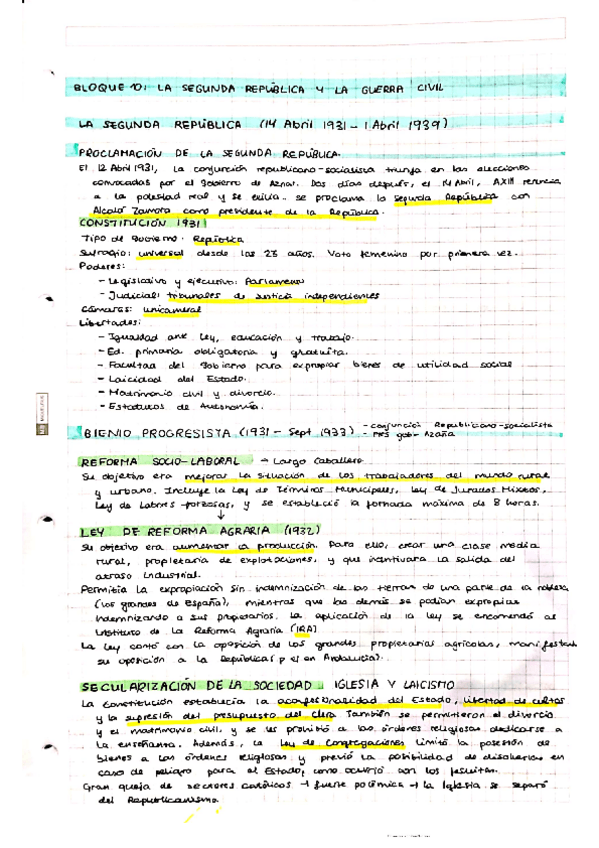 BLOQUE 10: LA SEGUNDA REPÚBLICA Y LA GUERRA CIVIL
LA SEGUNDA REPÚBLICA (14 Abril 1931 - 1 Abril 1939)
PROCLAMACIÓN DE LA SEGUNDA REPÚBLICA
El 12 Abril 1931, la conjunción republicano-socialista triunfa en las elecciones
convocadas por el gobierno de Aznar. Dos días después, el 14 Abril, AXIII renuncia
a la potestad real y se exilia. se proclama la segunda República con
Alcalá Zamora como presidente de la República.
CONSTITUCIÓN 1931
Tipo de Gobierno: República
Sufragio: universal desde los 23 años. Voto femenino por primera vez.
Poderes:
- Legislativo y ejecutivo: Parlamento
- Judicial: tribunales de justicia independientes
Cámaras: unicameral
Libertades:
- Igualdad ante ley, educación y trabajo.
- Ed. primaria obligatoria y gratuita.
- Facultad del Gobierno para expropiar bienes de utilidad social
- Laicidad del Estado.
- Matrimonio civil y divorcio.
- Estatutos de Autonomía.
BIENIO PROGRESISTA (1931 - Sept 1933) - conjunción Republicano-socialista
gob- Azaña
REFORMA SOCIO-LABORAL → Largo Caballero
Su objetivo era mejorar la situación de los trabajadores del mundo rural
y urbano. Incluye la Ley de Términos Municipales, ley de Jurados Mixtos,
Ley de Labores forzosas, y se estableció la jornada máxima de 8 horas.
LEY DE REFORMA AGRARIA (1932)
Su objetivo era aumentar la producción. Para ello, crear una clase media
rural, propietaria de explotaciones, y que incentivara la salida del
atraso industrial.
Permitía la expropiación sin indemnización de las tierras de una parte de la nobleza
(los grandes de España), mientras que las demás se podían expropiar
indemnizando a sus propietarios. la aplicación de la ley se encomendó al
Instituto de la Reforma Agraria (IRA)
La ley contó con la oposición de los grandes propietarios agrícolas, manifestando
su oposición a la República (p ej en Andalucía).
SECULARIZACIÓN DE LA SOCIEDAD: IGLESIA Y LAICISMO
La Constitución establecía la aconfesionalidad del Estado, libertad de cultos
y la supresión del presupuesto del clero También se permitieron el divorcio
y el matrimonio civil, y se les prohibió a las órdenes religiosas dedicarse a
la enseñanza. Además, la Ley de Congregaciones limitó la posesión de
bienes a las órdenes religiosas y previó la posibilidad de disolverlas en
caso de peligro para el Estado, como ocurrió con los jesuitas.
Gran queja de sectores católicos → fuerte polémica → la Iglesia se separó
del Republicanismo